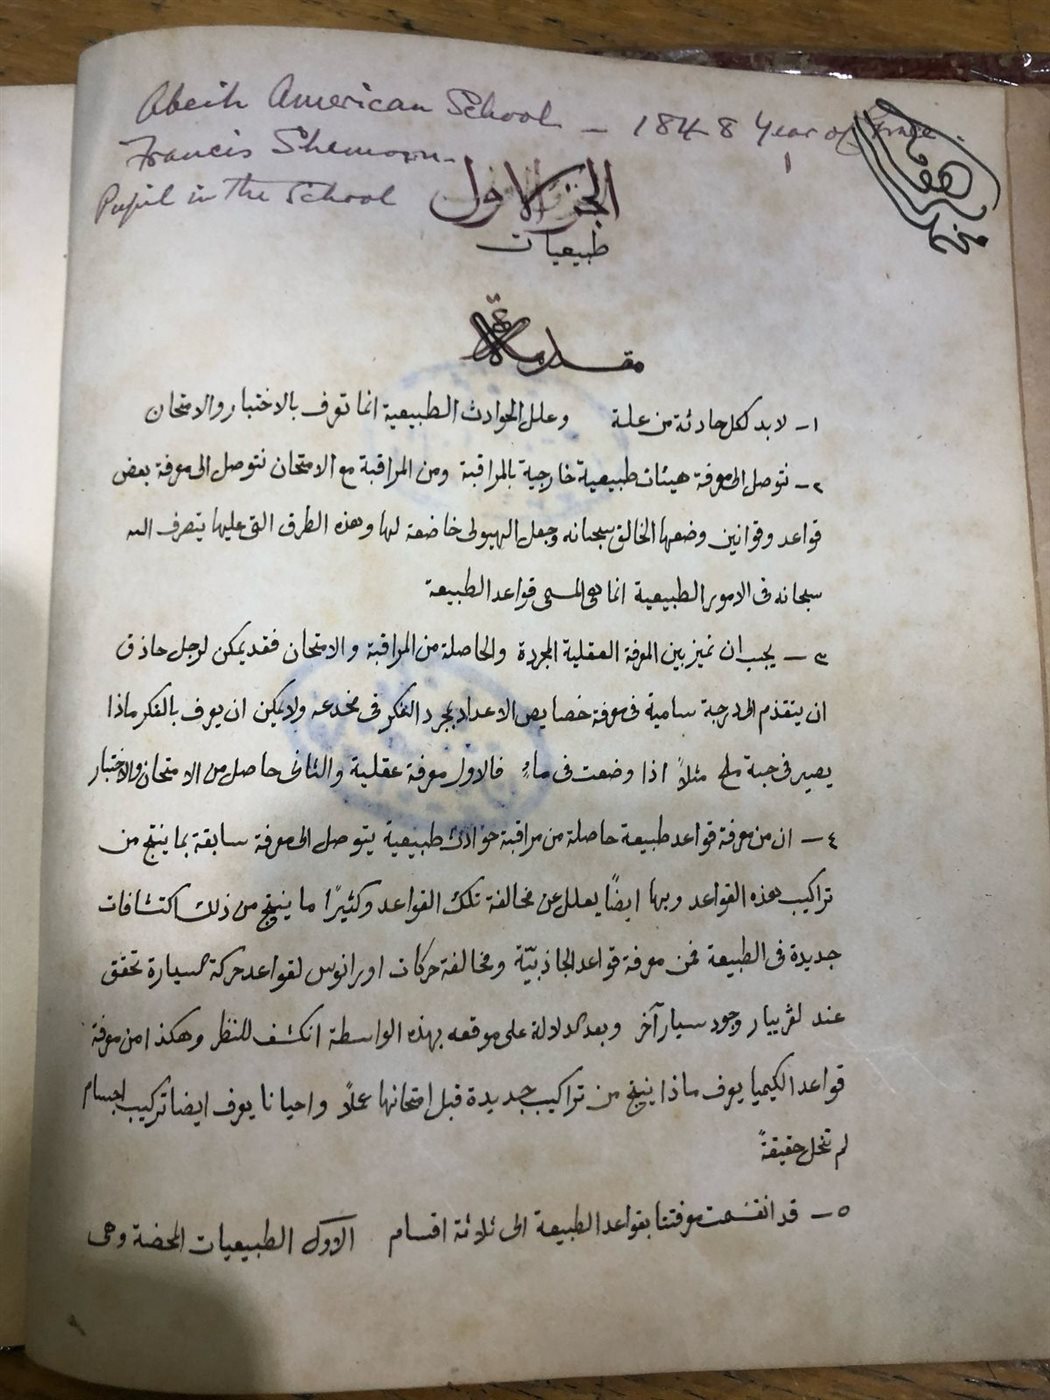 Abeih American School – 1848 Year of Grace
Francis Shemoon
Pupil in the School
١
الجزء الاول
طبيعيات
مقدمة
١ – لا بد لكل حادثة من علة وعلل الحوادث الطبيعية انما تعرف بالاختبار والامتحان
٢ – نتوصل الى معرفة هيئات طبيعية خارجية بالمراقبة ومن المراقبة مع الامتحان نتوصل الى معرفة بعض
قواعد وقوانين وضعها الخالق سبحانه وجعل الهيولى خاضعة لها وهذه الطرق التي عليها يتصرف الله
سبحانه في الامور الطبيعية انما هي المسمى قواعد الطبيعة
٣ – يجب ان نميز بين المعرفة العقلية المجردة والحاصلة من المراقبة والامتحان فقد يمكن لرجل حاذق
ان يتقدم الى درجة سامية في معرفة خصايص الاعداد بمجرد الفكر في مخدعه ولا يمكن ان يعرف بالفكر ماذا
يصير في حبة ملح مثلاً اذا وضعت في ماءٍ فالاول معرفة عقلية والثاني حاصل من الامتحان والاختبار
٤ – ان من معرفة قواعد طبيعة حاصلة من مراقبة حوادث طبيعية يتوصل الى معرفة سابقة بما ينتج من
تراكيب هذه القواعد وبها ايضًا يعلل عن مخالفة تلك القواعد وكثيرًا ما ينتج من ذلك اكتشافات
جديدة في الطبيعة فمن معرفة قواعد الجاذبيّة ومخالفة حركات اورانوس لقواعد حركة السيارة تحقق
عند لفريار وجود سيار آخر وبعد الدلالة على موقعه بهذه الواسطة انكشف للنظر وهكذا من معرفة
قواعد الكيميا يعرف ماذا ينتج من تراكيب جديدة قبل امتحانها عملاً واحيانا يعرف ايضا تركيب اجسام
لم تنحل حقيقةً
٥ – قد انقسمت معرفتنا بقواعد الطبيعة الى ثلاثة اقسام الاول الطبيعيات المحضة وهي